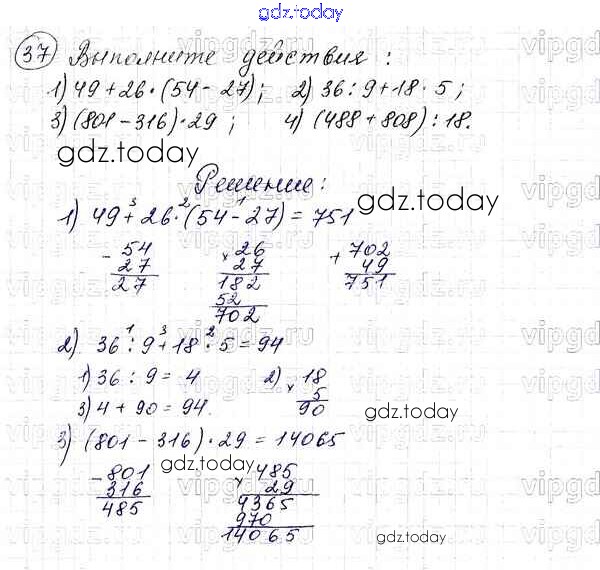 gdz.today
37 Выполните действия:
1) 49 + 26 · (54 - 27); 2) 36 : 9 + 18 · 5;
3) (801 - 316) · 29; 4) (488 + 808) : 18.
gdz.today
Решение:
gdz.today
3 2 1
1) 49 + 26 · (54 - 27) = 751
- 54 × 26 + 702
27 27 49
27 182 751
52
702
1 3 2
2) 36 : 9 + 18 : 5 = 94
1) 36 : 9 = 4 2) × 18
5
3) 4 + 90 = 94. 90
gdz.today
3) (801 - 316) · 29 = 14065
gdz.today
- 801 × 485
316 29
485 4365
970
14065
gdz.today